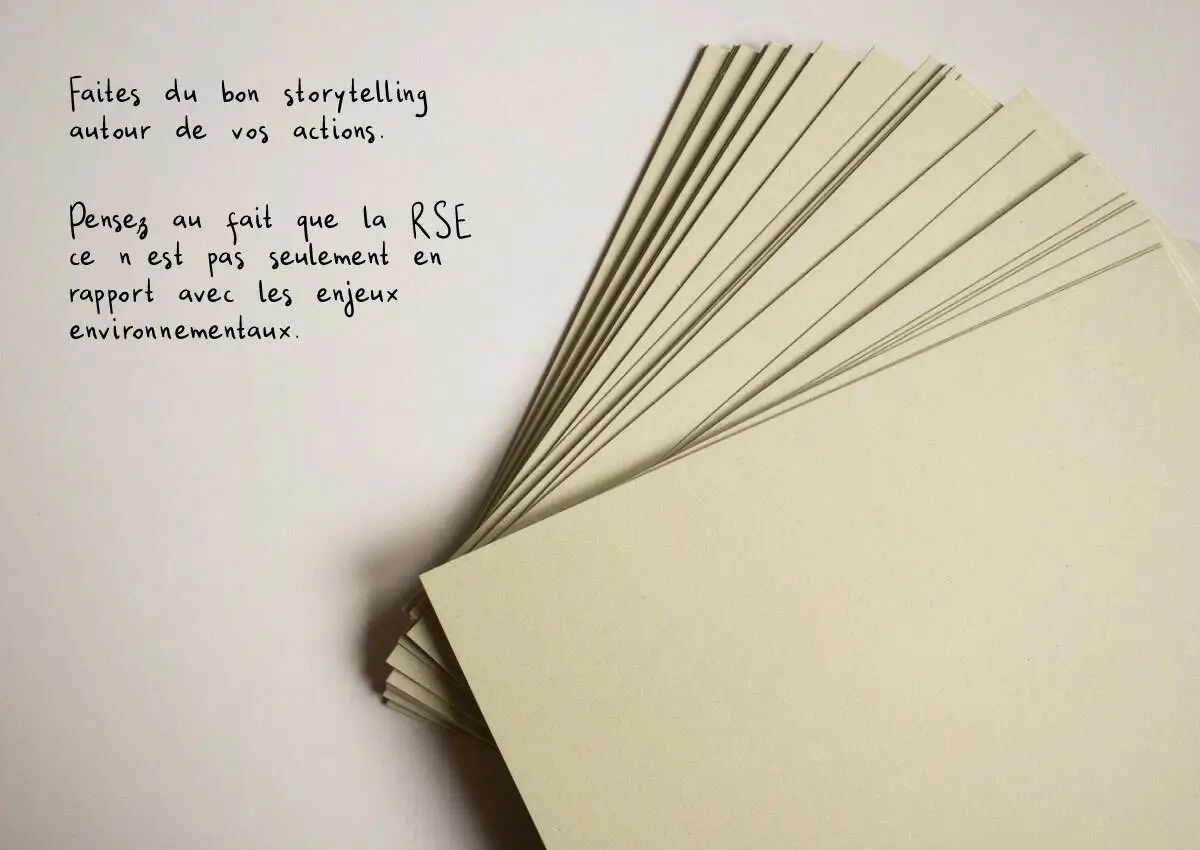 Faites du bon storytelling
autour de vos actions.
Pensez au fait que la RSE
ce n est pas seulement en
rapport avec les enjeux
environnementaux.